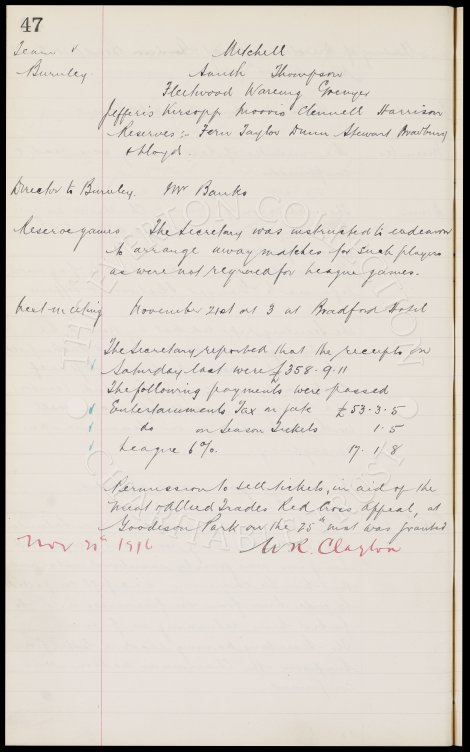 47
Team v Mitchell
Burnley. Smith Thompson
Fleetwood Wareing Grenyer
Jefferis Kirsopp Clennell Harrison
Reserves:- Fern Taylor Dunn Stewart Bradbury
& Lloyd.
Director to Burnley. Mr Banks
Reserve games The Secretary was instructed to endeavor
to arrange away matches for such players
as were not required for League games.
next meeting November 21st at 3 at Bradford Hotel
The Secretary reported that the receipts on
Saturday last were £358.9.11
The following payments were passed
Entertainments Tax on gate £53.3.5
do on Season Tickets 1.5
League 6%. 17.1.8
Permission to sell tickets, in aid of the
Meat & Allied Trades Red Cross Appeal, at
Goodison Park on the 25th inst was granted
Nov 21st 1916 W.R. Clayton
THE EVERTON COLLECTION CHARITABLE TRUST